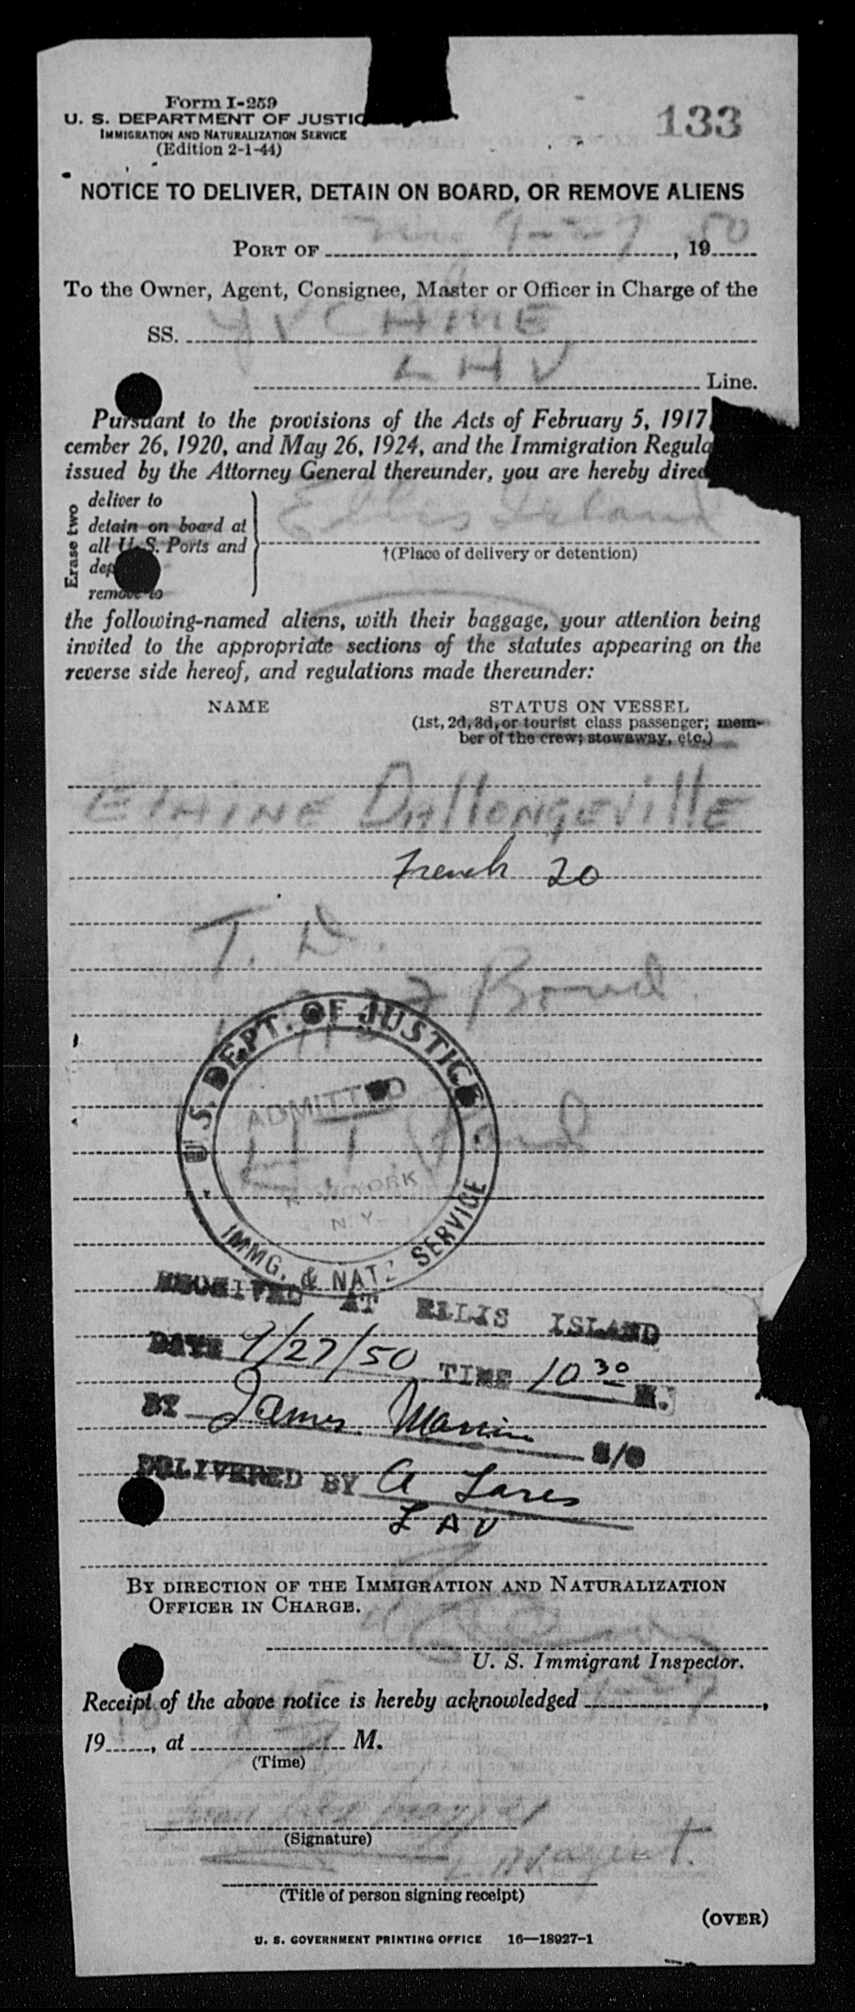 Form I-259
U. S. DEPARTMENT OF JUSTIC
IMMIGRATION AND NATURALIZATION SERVICE
(Edition 2-1-44)
133
NOTICE TO DELIVER, DETAIN ON BOARD, OR REMOVE ALIENS
PORT OF 9-27, 1950
To the Owner, Agent, Consignee, Master or Officer in Charge of the
SS.
LAV Line.
Pursuant to the provisions of the Acts of February 5, 1917
cember 26, 1920, and May 26, 1924, and the Immigration Regula
issued by the Attorney General thereunder, you are hereby direc
Erase two
deliver to
detain on board at
all U. S. Ports and
dep
remove to
Ellis Island
†(Place of delivery or detention)
the following-named aliens, with their baggage, your attention being
invited to the appropriate sections of the statutes appearing on the
reverse side hereof, and regulations made thereunder:
NAME STATUS ON VESSEL
(1st, 2d, 3d, or tourist class passenger; mem-
ber of the crew; stowaway, etc.)
ElAiNE DAllongeville
French 20
T. D.
Bond
U.S. DEPT. OF JUSTICE
ADMITTED
YORK
N. Y.
IMMG. & NATZ SERVICE
RECEIVED AT ELLIS ISLAND
DATE 9/27/50 TIME 10 30 M.
BY James S/O
DELIVERED BY A Lares
LAV
BY DIRECTION OF THE IMMIGRATION AND NATURALIZATION
OFFICER IN CHARGE.
U. S. Immigrant Inspector.
Receipt of the above notice is hereby acknowledged 9-27,
19, at M.
(Time)
(Signature)
agent.
(Title of person signing receipt)
(OVER)
U. S. GOVERNMENT PRINTING OFFICE 16—18927-1